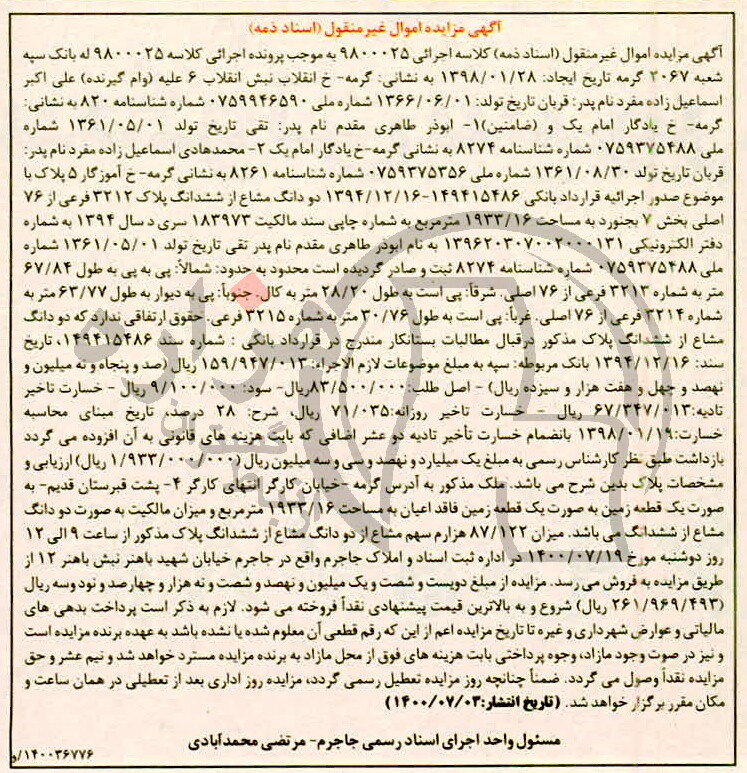 آگهی مزایده اموال غیرمنقول (اسناد ذمه)
آگهی مزایده اموال غیرمنقول (اسناد ذمه) کلاسه اجرائی ۹۸۰۰۰۲۵ به موجب پرونده اجرائی کلاسه ۹۸۰۰۰۲۵ له بانک سپه
شعبه ۲۰۶۷ گرمه تاریخ ایجاد: ۱۳۹۸/۰۱/۲۸ به نشانی: گرمه- خ انقلاب نبش انقلاب ۶ علیه (وام گیرنده) علی اکبر
اسماعیل زاده مفرد نام پدر: قربان تاریخ تولد: ۱۳۶۶/۰۶/۰۱ شماره ملی ۰۷۵۹۹۴۶۵۹۰ شماره شناسنامه ۸۲۰ به نشانی:
گرمه- خ یادگار امام یک و (ضامنین)۱- ابوذر طاهری مقدم نام پدر: تقی تاریخ تولد ۱۳۶۱/۰۵/۰۱ شماره
ملی ۰۷۵۹۳۷۵۴۸۸ شماره شناسنامه ۸۲۷۴ به نشانی گرمه-خ یادگار امام یک ۲- محمدهادی اسماعیل زاده مفرد نام پدر:
قربان تاریخ تولد ۱۳۶۱/۰۸/۳۰ شماره ملی ۰۷۵۹۳۷۵۳۵۶ شماره شناسنامه ۸۲۶۱ به نشانی گرمه-خ آموزگار ۵ پلاک با
موضوع صدور اجرائیه قرارداد بانکی ۱۴۹۴۱۵۴۸۶-۱۳۹۴/۱۲/۱۶ دو دانگ مشاع از ششدانگ پلاک ۳۲۱۲ فرعی از ۷۶
اصلی بخش ۷ بجنورد به مساحت ۱۹۳۳/۱۶ مترمربع به شماره چاپی سند مالکیت ۱۸۳۹۷۳ سری د سال ۱۳۹۴ به شماره
دفتر الکترونیکی ۱۳۹۶۲۰۳۰۷۰۰۲۰۰۰۱۳۱ به نام ابوذر طاهری مقدم نام پدر تقی تاریخ تولد ۱۳۶۱/۰۵/۰۱ شماره
ملی۰۷۵۹۳۷۵۴۸۸ شماره شناسنامه ۸۲۷۴ ثبت و صادر گردیده است محدود به حدود: شمالاً: پی به پی به طول ۶۷/۸۴
متر به شماره ۳۲۱۳ فرعی از ۷۶ اصلی. شرقاً: پی است به طول ۲۸/۲۰ متر به کال. جنوباً: پی به دیوار به طول ۶۳/۷۷ متر به
شماره ۳۲۱۴ فرعی از ۷۶ اصلی. غرباً: پی است به طول ۳۰/۷۶ متر به شماره ۳۲۱۵ فرعی. حقوق ارتفاقی ندارد که دو دانگ
مشاع از ششدانگ پلاک مذکور درقبال مطالبات بستانکار مندرج در قرارداد بانکی : شماره سند ۱۴۹۴۱۵۴۸۶، تاریخ
سند: ۱۳۹۴/۱۲/۱۶ بانک مربوطه: سپه به مبلغ موضوعات لازم الاجراء: ۱۵۹/۹۴۷/۰۱۳ ریال (صد و پنجاه و نه میلیون و
نهصد و چهل و هفت هزار و سیزده ریال) - اصل طلب:۸۳/۵۰۰/۰۰۰ریال- سود: ۹/۱۰۰/۰۰۰ ریال - خسارت تاخیر
تادیه:۶۷/۳۴۷/۰۱۳ ریال - خسارت تاخیر روزانه:۷۱/۰۳۵ ریال، شرح: ۲۸ درصد، تاریخ مبنای محاسبه
خسارت:۱۳۹۸/۰۱/۱۹ بانضمام خسارت تأخیر تادیه دو عشر اضافی که بابت هزینه های قانونی به آن افزوده می گردد
بازداشت طبق نظر کارشناس رسمی به مبلغ یک میلیارد و نهصد و سی و سه میلیون ریال (۱/۹۳۳/۰۰۰/۰۰۰ ریال) ارزیابی و
مشخصات پلاک بدین شرح می باشد. ملک مذکور به آدرس گرمه -خیابان کارگر انتهای کارگر ۴- پشت قبرستان قدیم- به
صورت یک قطعه زمین به صورت یک قطعه زمین فاقد اعیان به مساحت ۱۹۳۳/۱۶ مترمربع و میزان مالکیت به صورت دو دانگ
مشاع از ششدانگ می باشد. میزان ۸۷/۱۲۲ هزارم سهم مشاع از دو دانگ مشاع از ششدانگ پلاک مذکور از ساعت ۹ الی ۱۲
روز دوشنبه مورخ ۱۴۰۰/۰۷/۱۹ در اداره ثبت اسناد و املاک جاجرم واقع در جاجرم خیابان شهید باهنر نبش باهنر ۱۲ از
طریق مزایده به فروش می رسد. مزایده از مبلغ دویست و شصت و یک میلیون و نهصد و شصت و نه هزار و چهارصد و نود وسه ریال
(۲۶۱/۹۶۹/۴۹۳ ریال) شروع و به بالاترین قیمت پیشنهادی نقداً فروخته می شود. لازم به ذکر است پرداخت بدهی های
مالیاتی و عوارض شهرداری و غیره تا تاریخ مزایده اعم از این که رقم قطعی آن معلوم شده یا نشده باشد به عهده برنده مزایده است
و نیز در صوت وجود مازاد، وجوه پرداختی بابت هزینه های فوق از محل مازاد به برنده مزایده مسترد خواهد شد و نیم عشر و حق
مزایده نقداً وصول می گردد. ضمناً چنانچه روز مزایده تعطیل رسمی گردد، مزایده روز اداری بعد از تعطیلی در همان ساعت و
مکان مقرر برگزار خواهد شد. (تاریخ انتشار:۱۴۰۰/۰۷/۰۳)
مسئول واحد اجرای اسناد رسمی جاجرم- مرتضی محمدآبادی
۱۴۰۰۳۶۷۷۶/و